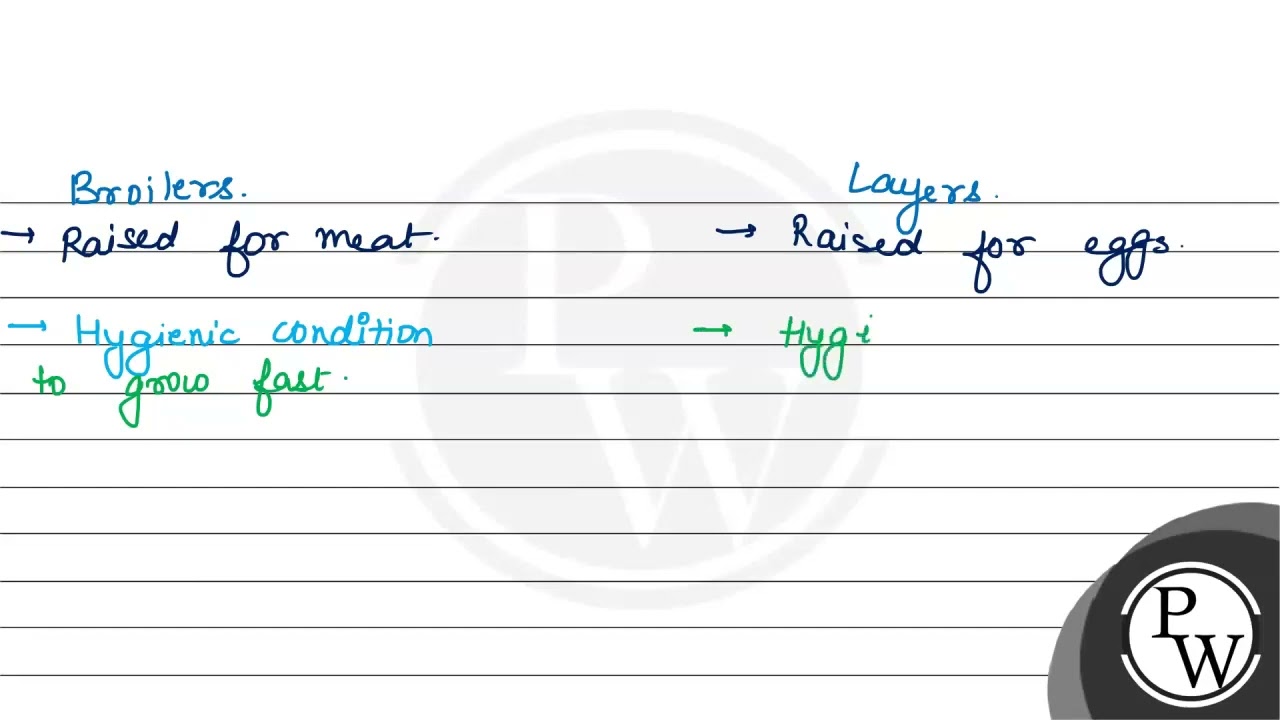 Broilers.
Layers.
→ Raised for meat.
→ Raised for eggs.
→ Hygienic condition
→ Hygi
to grow fast.
PW
PW